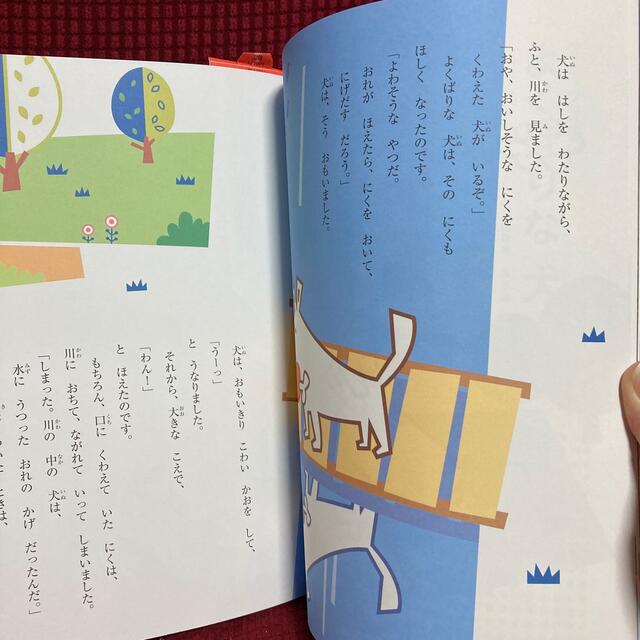 犬は はしを わたりながら、
ふと、川を 見ました。
「おや、おいしそうな にくを
くわえた 犬が いるぞ。」
よくばりな 犬は、その にくも
ほしく なったのです。
「よわそうな やつだ。
おれが ほえたら、にくを おいて、
にげだす だろう。」
犬は、そう おもいました。
犬は、おもいきり こわい かおを して、
「うーっ」
と うなりました。
それから、大きな こえで、
「わん！」
と ほえたのです。
もちろん、口に くわえて いた にくは、
川に おちて、ながれて いって しまいました。
「しまった。川の 中の 犬は、
水に うつった おれの かげ だったんだ。」